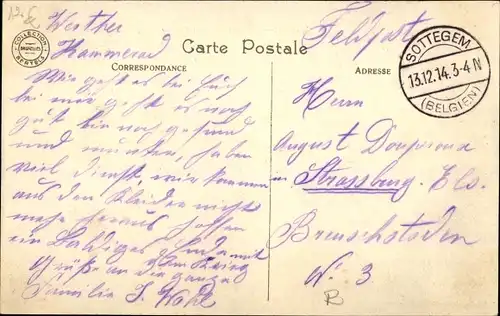 Werther
Kammerad
Wie geht es bei Euch
bei mir geht es noch
gut bin noch gesund
und munter, haben
viel Dienst wir kommen
aus den Kleider nichts
mehr heraus hoffen
ein baldiges Ende mit
dem Krieg
Grüße an die ganze
Familie J. Wohl
Carte Postale
CORRESPONDANCE
ADRESSE
COLLECTION
BERTELS
Feldpost
SOTTEGEM
13.12.14.3-4 N
(BELGIEN)
Herrn
August
in Strassburg. Els.
No. 3